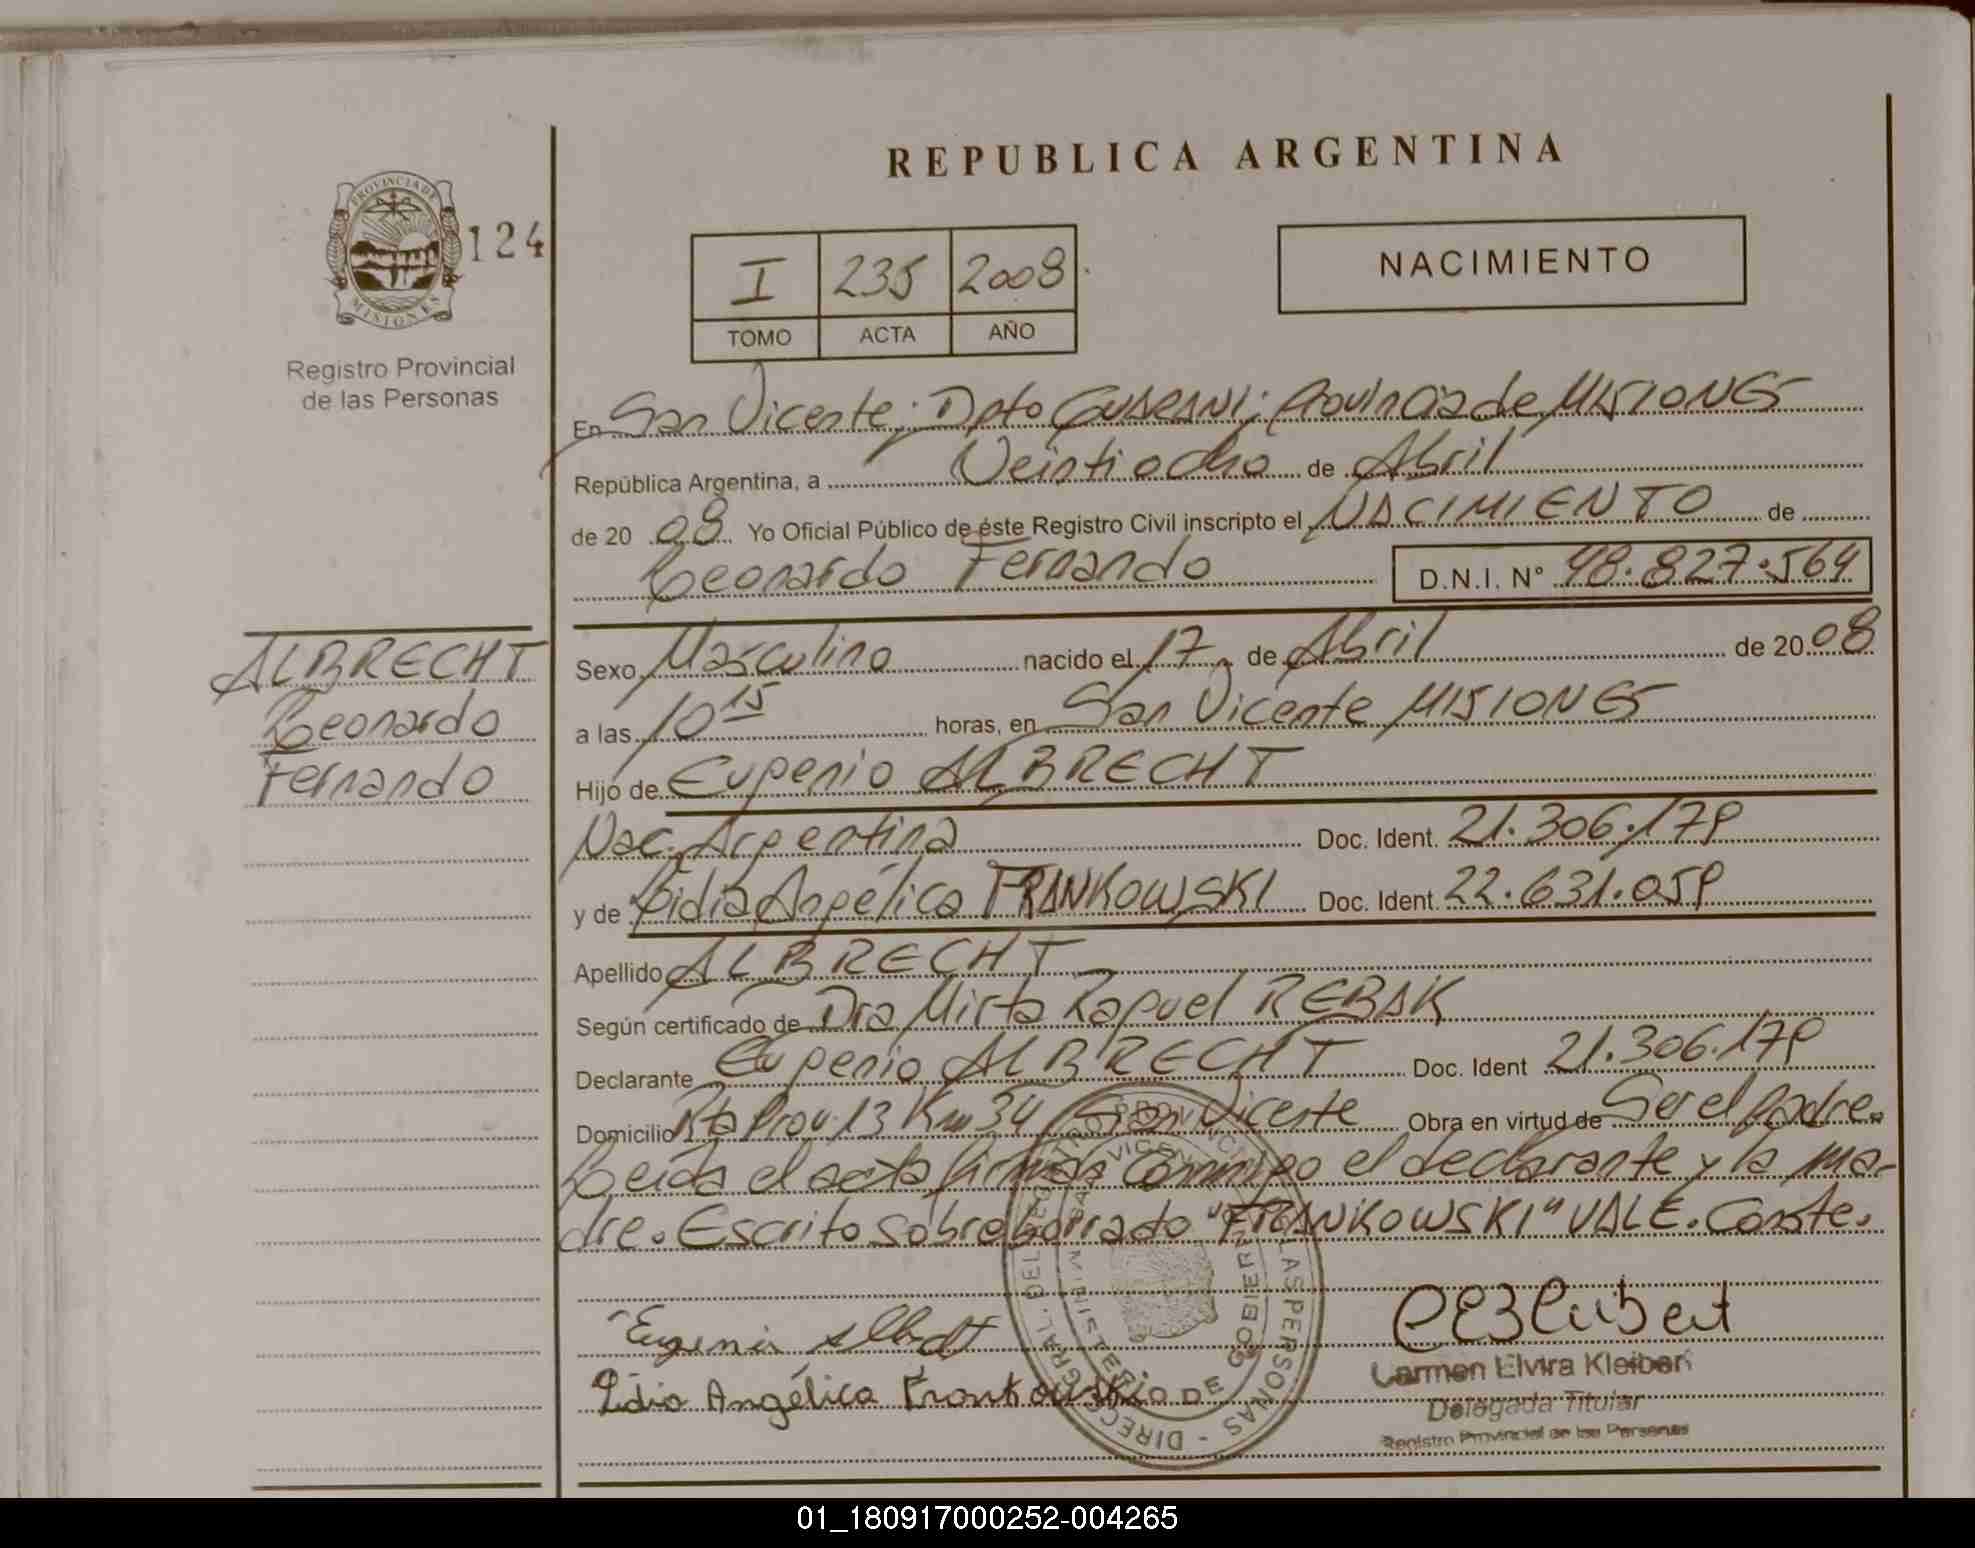 REPUBLICA ARGENTINA
PROVINCIA DE
MISIONES
124
Registro Provincial
de las Personas
I 235 2008
TOMO ACTA AÑO
NACIMIENTO
En San Vicente; Dpto GUARANI; Provincia de MISIONES
República Argentina, a Veintiocho de Abril
de 20 08 Yo Oficial Público de éste Registro Civil inscripto el NACIMIENTO de
Leonardo Fernando D.N.I. N° 48.827.564
ALBRECHT
Leonardo
Fernando
Sexo Masculino nacido el 17 de Abril de 20 08
a las 10 15 horas, en San Vicente MISIONES
Hijo de Eugenio ALBRECHT
Nac. Argentina Doc. Ident. 21.306.179
y de Lidia Angélica FRANKOWSKI Doc. Ident. 22.631.059
Apellido ALBRECHT
Según certificado de Dra Mirta Raquel REBAK
Declarante Eugenio ALBRECHT Doc. Ident 21.306.179
Domicilio Rta Prov. 13 Km 34 San Vicente Obra en virtud de Ser el Padre.
Leída el acta firman conmigo el declarante y la ma-
dre. Escrito sobre borrado "FRANKOWSKI" VALE. Conste.
Eugenio Albrecht
Lidia Angélica Frankowski
Carmen Elvira Kleiber
Delegada Titular
Registro Provincial de las Personas
01_180917000252-004265